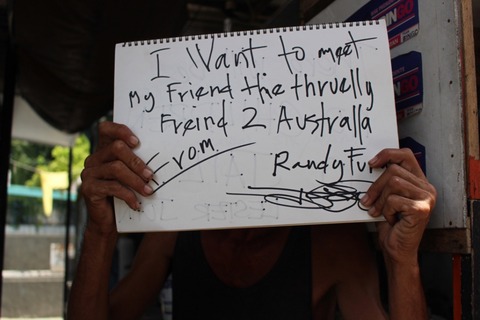 I Want to meet
My Friend the thruelly
Freind 2 Australla
From.
Randy Fu
NGO